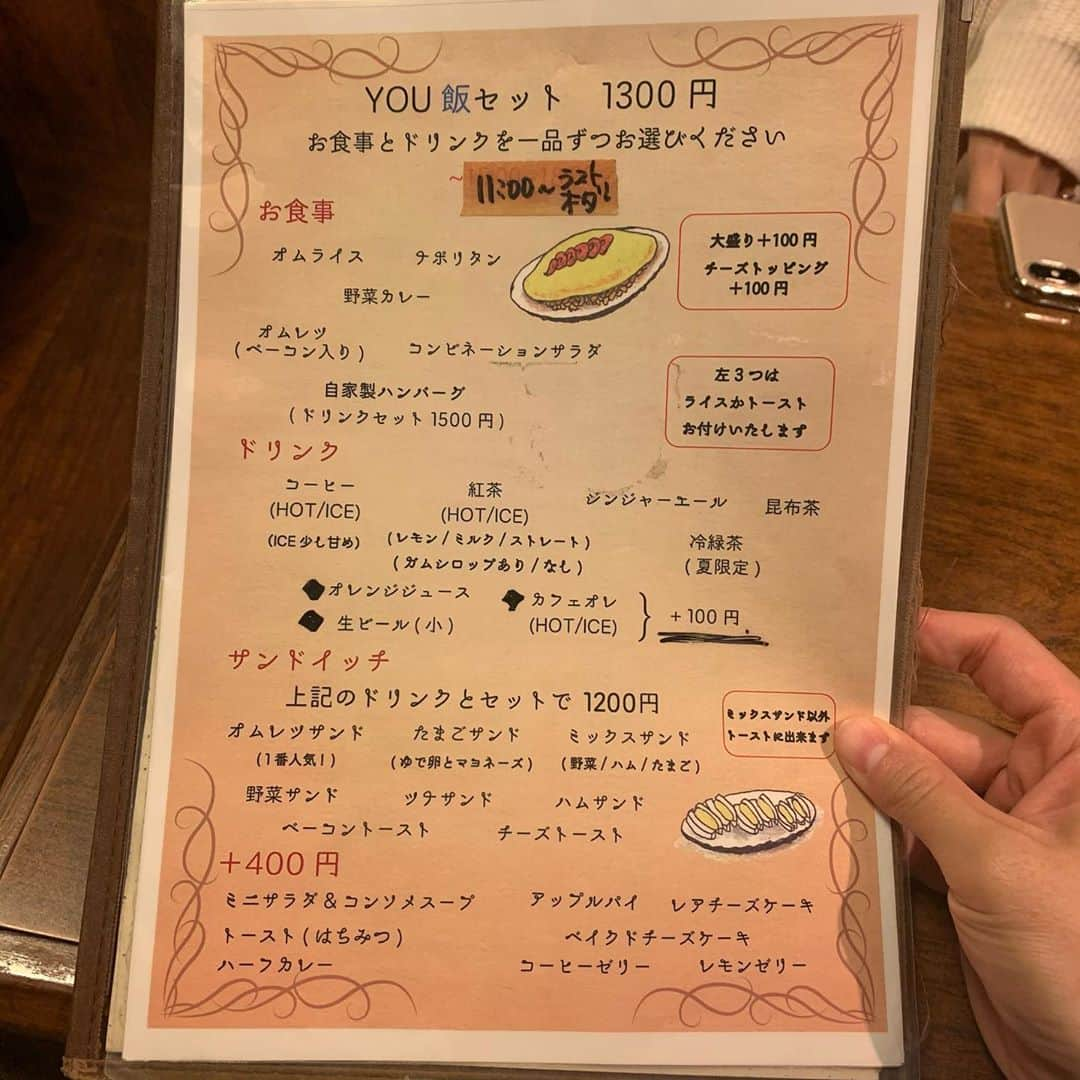 YOU 飯セット 1300 円
お食事とドリンクを一品ずつお選びください
~
11:00~ラストオーダー
お食事
オムライス ナポリタン
大盛り+100 円
チーズトッピング
+100 円
野菜カレー
オムレツ
(ベーコン入り) コンビネーションサラダ
自家製ハンバーグ
(ドリンクセット 1500 円)
左３つは
ライスかトースト
お付けいたします
ドリンク
コーヒー
(HOT/ICE)
(ICE 少し甘め)
紅茶
(HOT/ICE)
(レモン/ミルク/ストレート)
(ガムシロップあり/なし)
ジンジャーエール 昆布茶
冷緑茶
(夏限定)
オレンジジュース
生ビール(小)
カフェオレ
(HOT/ICE)
+100 円
サンドイッチ
上記のドリンクとセットで 1200円
ミックスサンド以外
トーストに出来ます
オムレツサンド たまごサンド ミックスサンド
(1番人気!) (ゆで卵とマヨネーズ) (野菜/ハム/たまご)
野菜サンド ツナサンド ハムサンド
ベーコントースト チーズトースト
+400 円
ミニサラダ&コンソメスープ アップルパイ レアチーズケーキ
トースト(はちみつ) ベイクドチーズケーキ
ハーフカレー コーヒーゼリー レモンゼリー